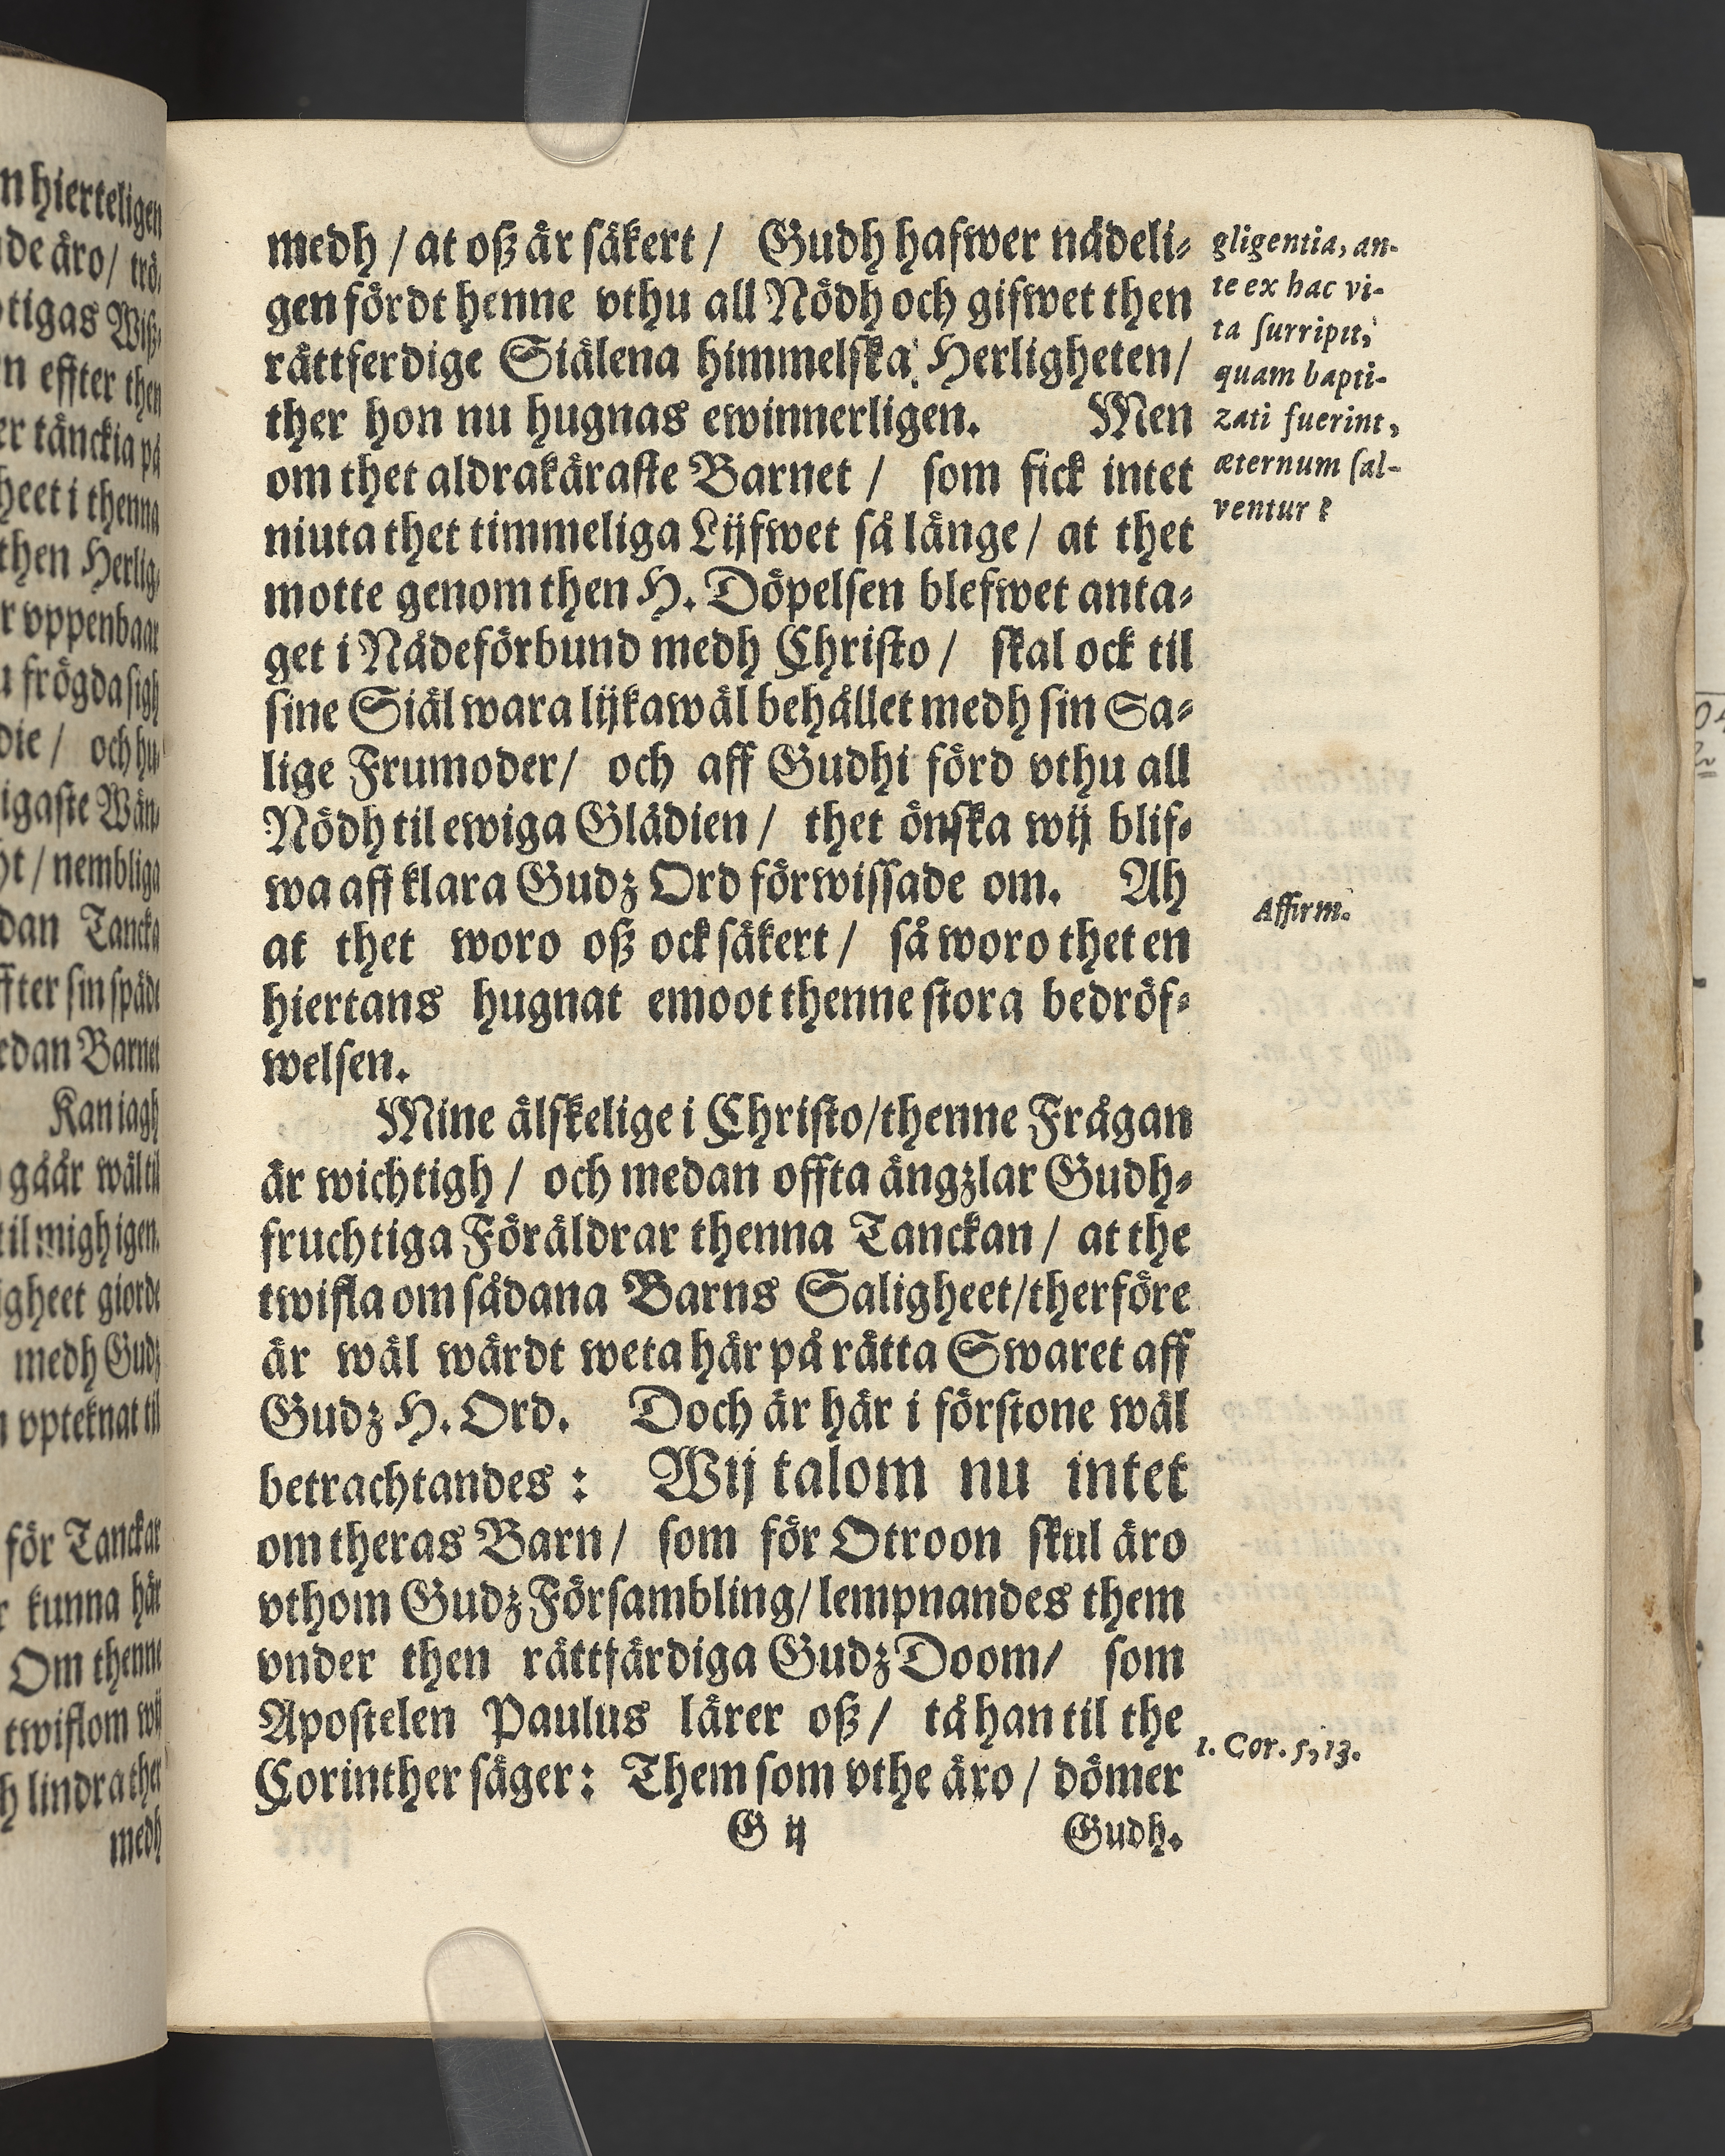 medh / at oß är säkert / Gudh hafwer nådeli-
gen fördt henne vthu all Nödh och gifwet then
rättferdige Siälena himmelska Herligheten /
ther hon nu hugnas ewinnerligen. Men
om thet aldrakäraste Barnet / som fick intet
niuta thet timmeliga Lijfwet så länge / at thet
motte genom then H. Döpelsen blefwet anta-
get i Nådeförbund medh Christo / skal ock til
sine Siäl wara lijkawäl behållet medh sin Sa-
lige Frumoder / och aff Gudhi förd vthu all
Nödh til ewiga Glädien / thet önska wij blif-
wa aff klara Gudz Ord förwissade om. Ah
at thet woro oß ock säkert / så woro thet en
hiertans hugnat emoot thenne stora bedröf-
welsen.
Mine älskelige i Christo / thenne Frågan
är wichtigh / och medan offta ängzlar Gudh-
fruchtiga Föräldrar thenna Tanckan / at the
twifla om sådana Barns Saligheet / therföre
är wäl wärdt weta här på rätta Swaret aff
Gudz H. Ord. Doch är här i förstone wäl
betrachtandes : Wij talom nu intet
om theras Barn / som för Otroon skul äro
vthom Gudz Försambling / lempnandes them
vnder then rättfärdiga Gudz Doom / som
Apostelen Paulus lärer oß / tå han til the
Corinther säger : Them som vthe äro / dömer
G ij Gudh.
gligentia, an-
te ex hac vi-
ta surripit,
quam bapti-
zati fuerint,
æternum sal-
ventur ?
Affirm.
1. Cor. 5, 13.
n hierteligen
de äro / trö-
tigas Wiß-
n effter then
er tänckia på
heet i thenna
then Herlig-
r vppenbaar
u frögda sigh
die / och hu-
igaste Wän-
ht / nembliga
dan Tancka
ffter sin späde
rdan Barnet
Kan iagh
gåår wäl til
til migh igen.
igheet giorde
medh Gudz
n vpteknat til
för Tanckar
r kunna här
Om thenne
twiflom wij
h lindra ther
medh